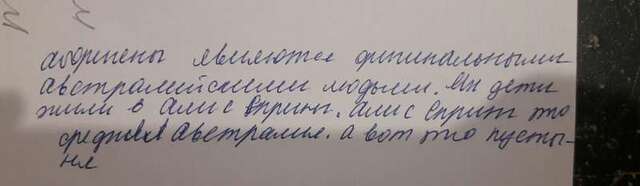 аборигены являются оригинальными
австралийскими людьми. Их дети
жили в Алис Спринг. Алис Спринг это
средняя Австралия. а вот это пусты-
ня